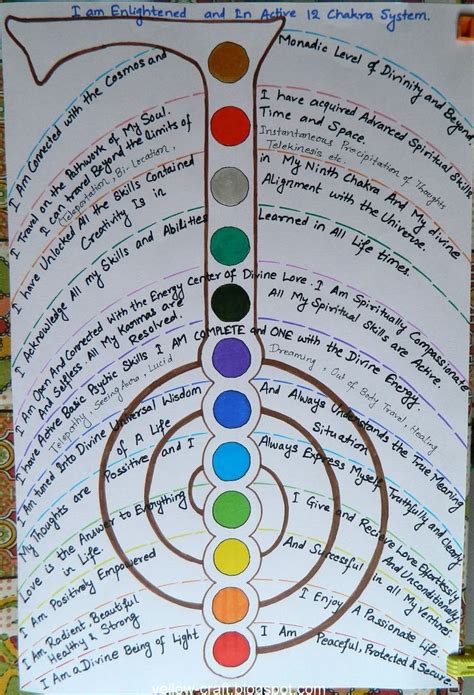 I am Enlightened and In Active 12 Chakra System.
I Am Connected with the Cosmos and
Monadic Level of Divinity and Beyond.
I Travel on the Pathwork of My Soul.
I have acquired Advanced Spiritual Skills
I can travel Beyond the limits of
Time and Space
Teleportation, Bi, Location,
Instantaneous Precipitation of Thoughts
Telekinesis etc.
I have Unlocked All the Skills Contained
in My Ninth Chakra And My divine
Creativity Is in
Alignment with the Universe.
I Acknowledge All my Skills and Abilities
Learned in All Life times.
I Am Open And Connected With the Energy Center of Divine Love. I Am Spiritually Compassionate
And Selfless All My Karmas are
Resolved.
All My Spiritual Skills are Active.
I have Active Basic Psychic Skills I AM COMPLETE and ONE with the Divine Energy.
Telepathy, Seeing Aura, Lucid
Dreaming, Out of Body Travel, Healing
I am tuned Into Divine Universal Wisdom
And Always Understands the True Meaning
Of A Life
Situation
My Thoughts are Possitive and I
Always Express Myself Truthfully and
Love is the Answer to Everything
in Life.
I Give and Recieve Love Effortlessly
And Unconditionally
I Am Positively Empowered
And Successful in all My Ventures.
I Am Radient, Beautiful
Healthy & Strong
I Enjoy A Passionate Life
I Am a Divine Being of Light
I Am Peaceful, Protected & Secure.
yellow-craft.blogspot.com